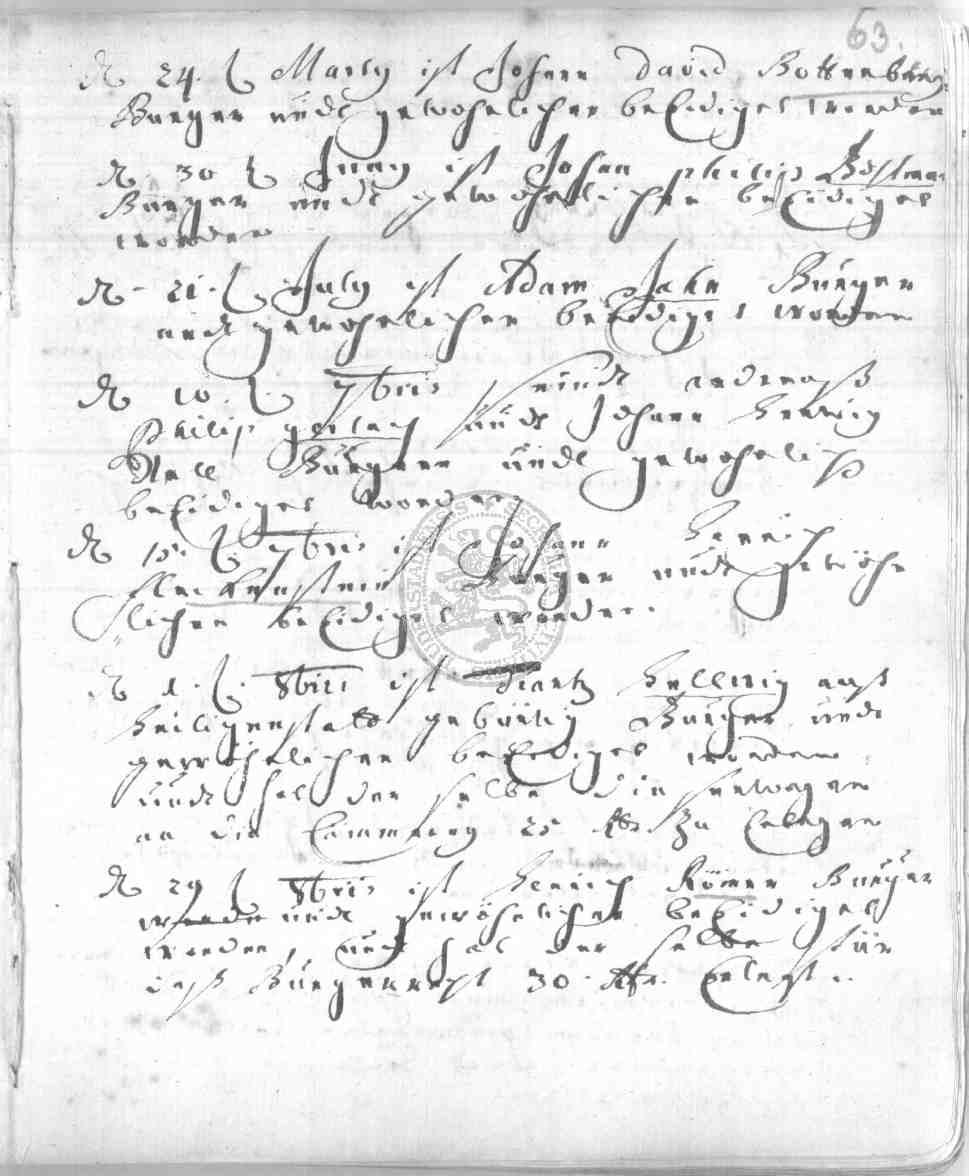 63.
24. t Marty ist Johann david Bottenber
Burger undt gewöhnlicher beEidiget worden
30 t Juny ist Johan philip Bostma
Burger undt gewöhnlichen beEidiget
worden
21. t July ist Adam Jahn Burger
undt gewöhnlichen beEidiget worden
10. t 7bris seindt andreaß
Philip gerlach undt Johann
Burgere undt gewöhnlich
beEidiget worden
15. t 7bris ist Johann Henrich
Burger undt gewöhn
lichen beEidiget worden.
1. t. 8bris ist Hellwig auß
Heiligenstatt gebürtig Burger undt
gewöhnlichen beEidiget worden
undt sol der selbe
an die Cammerey 25 zu
29 t 8bris ist Henrich Römer Burger
undt gewöhnlichen beEidiget
worden, undt hat der selbe für
daß Burgerrecht 30. Erlegt.